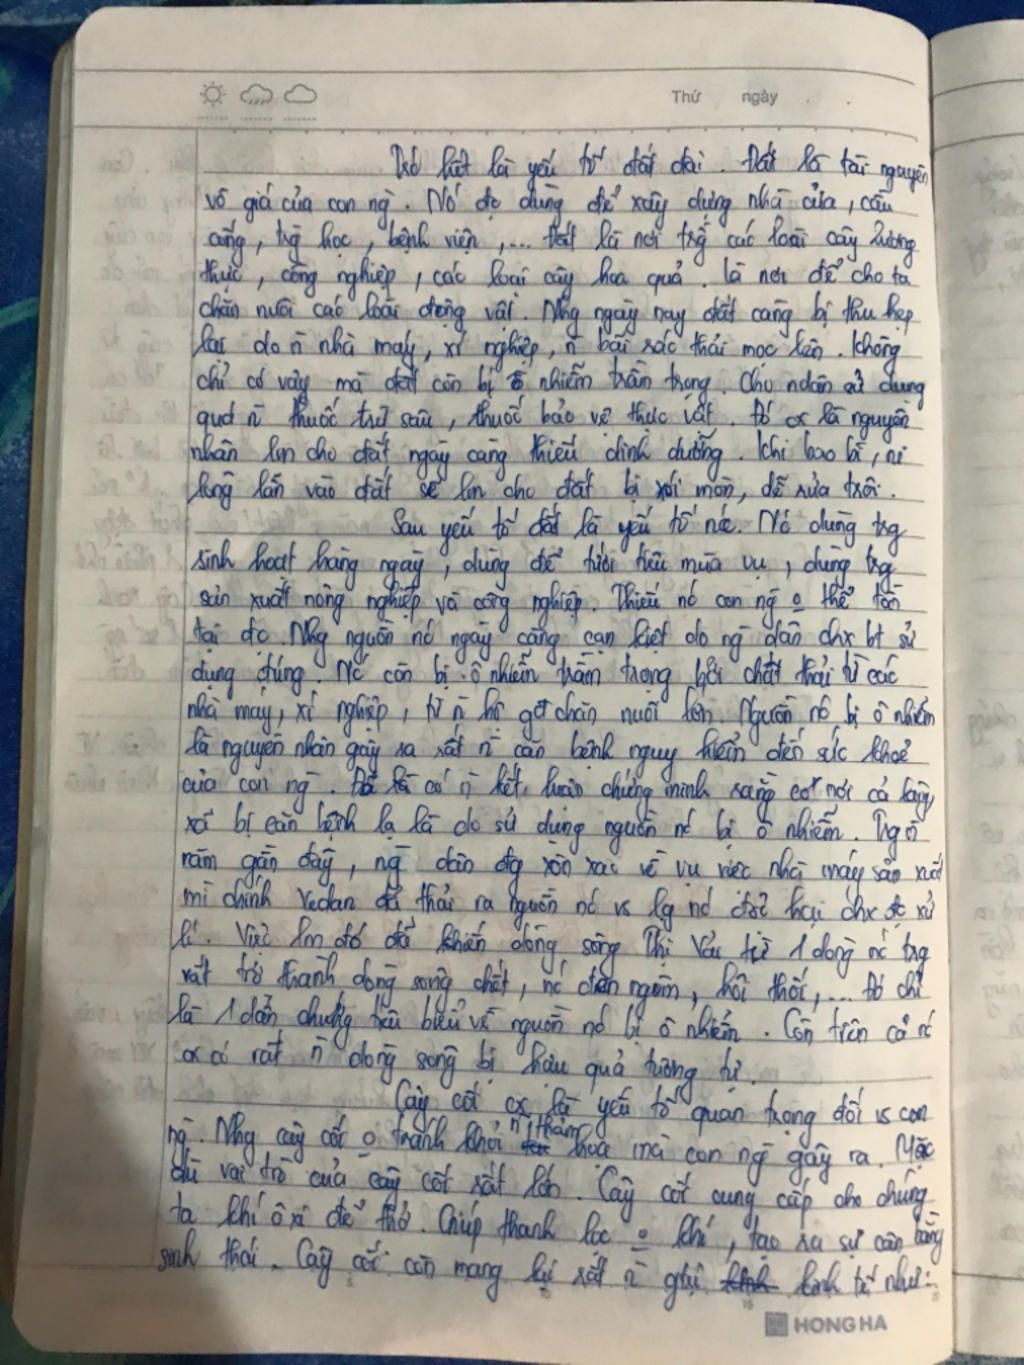 Thứ ngày
Trc hết là yếu tố đất đai. Đất là tài nguyên
vô giá của con ng̀. Nó đc dùng để xây dựng nhà cửa, cầu
cống, trg̀ học, bệnh viện,... Đất là nơi trg̀ các loài cây lương
thực, công nghiệp, các loại cây hoa quả. là nơi để cho ta
chăn nuôi các loài động vật. Nhg ngày nay đất càng bị thu hẹp
lại do n̄ nhà máy, xí nghiệp, n̄ bãi rác thải mọc lên. Không
chỉ có vậy mà đất còn bị ô nhiễm trầm trọng. Cho ndân sử dụng
quá n̄ thuốc trừ sâu, thuốc bảo vệ thực vật. Đó cx là nguyên
nhân lm cho đất ngày càng thiếu dinh dưỡng. Khi bao bì, ni
lông lẫn vào đất sẽ lm cho đất bị xói mòn, dễ rửa trôi.
Sau yếu tố đất là yếu tố nc. Nó dùng trg
sinh hoạt hàng ngày, dùng để tưới tiêu mùa vụ, dùng trg
sản xuất nông nghiệp và công nghiệp. Thiếu nó con ng̀ o thể tồn
tại đc. Nhg nguồn nc ngày càng cạn kiệt do ng̀ dân chx bt sử
dụng đúng. Nc còn bị ô nhiễm trầm trọng bởi chất thải từ các
nhà máy, xí nghiệp, từ n̄ hộ gđ chăn nuôi lớn. Nguồn nc bị ô nhiễm
là nguyên nhân gây ra rất n̄ căn bệnh nguy hiểm đến sức khoẻ
của con ng̀. Đã có n̄ kết luận chứng minh rằng có nơi cả làng
xã bị căn bệnh lạ là do sử dụng nguồn nc bị ô nhiễm. Trg n̄
năm gần đây, ng̀ dân đg xôn xao về vụ việc nhà máy sản xuất
mì chính Vedan đã thải ra nguồn nc vs lg nc độc hại chx đc xử
lí. Việc lm đó đã khiến dòng sông Thị Vải từ 1 dòng nc trg
vắt trở thành dòng sông chết, nc đen ngòm, hôi thối,... Đó chỉ
là 1 dẫn chứng tiêu biểu về nguồn nc bị ô nhiễm. Còn trên cả nc
cx có rất n̄ dòng sông bị hậu quả tương tự.
Cây cối cx là yếu tố quan trọng đối vs con
ng̀. Nhg cây cối o tránh khỏi n̄ thảm hoạ mà con ng̀ gây ra. Mặc
dù vai trò của cây cối rất lớn. Cây cối cung cấp cho chúng
ta khí ôxi để thở. Giúp thanh lọc o khí, tạo ra sự cân bằng
sinh thái. Cây cối còn mang lại rất n̄ giá kinh tế như:
HONG HA